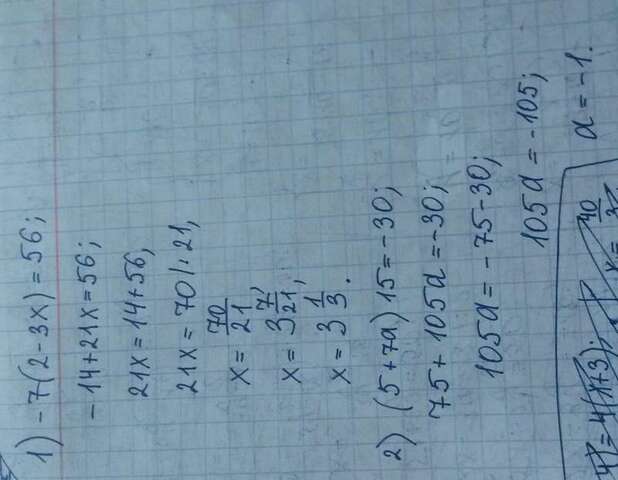 1) -7(2-3x)=56;
-14+21x=56;
21x=14+56,
21x=70 |:21,
x=70/21
x=3 7/21,
x=3 1/3.
2) (5+7a)15=-30;
75+105a=-30;
105a=-75-30;
105a=-105;
a=-1.
=4(x+3);
x=